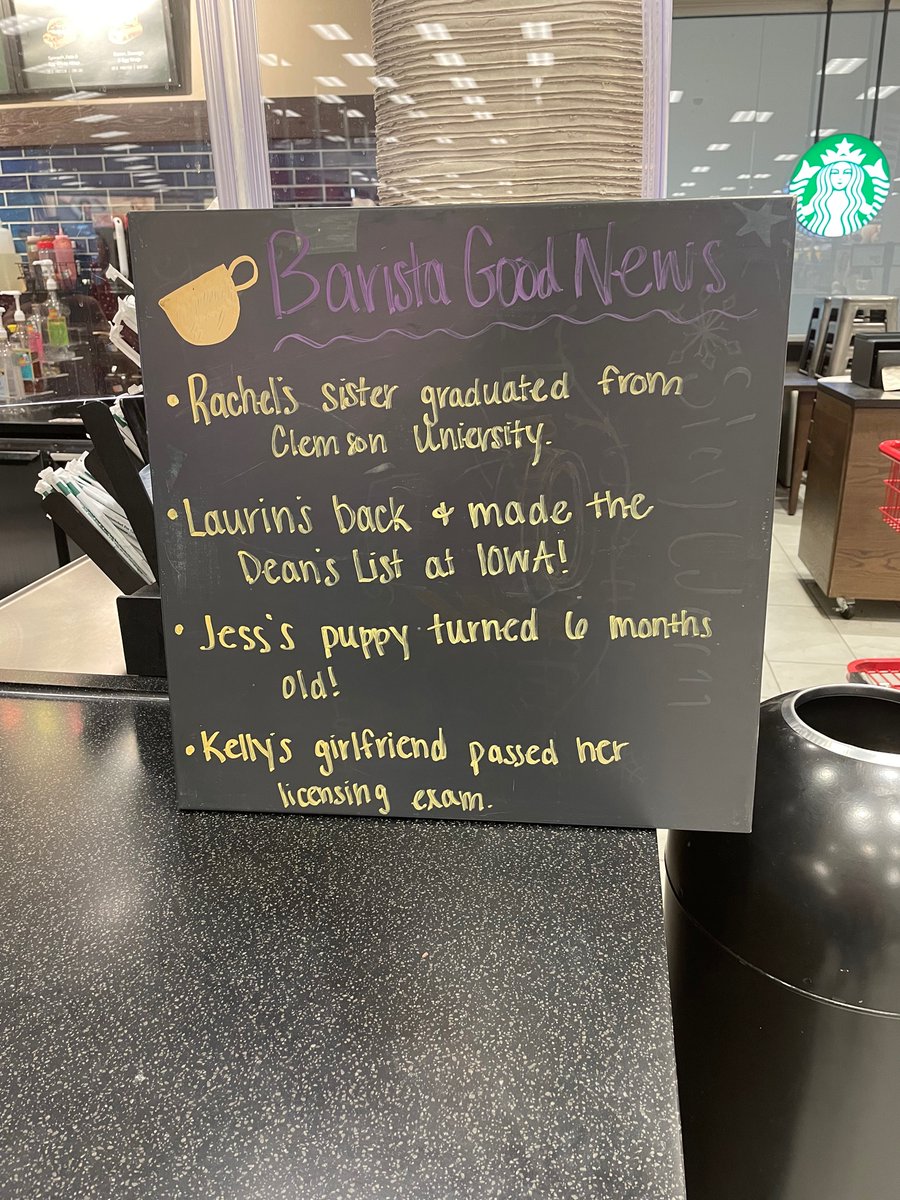 Barista Good News
• Rachel's sister graduated from
Clemson Uniersity.
• Laurin's back & made the
Dean's List at IOWA!
• Jess's puppy turned 6 months
old!
• Kelly's girlfriend passed her
licensing exam.